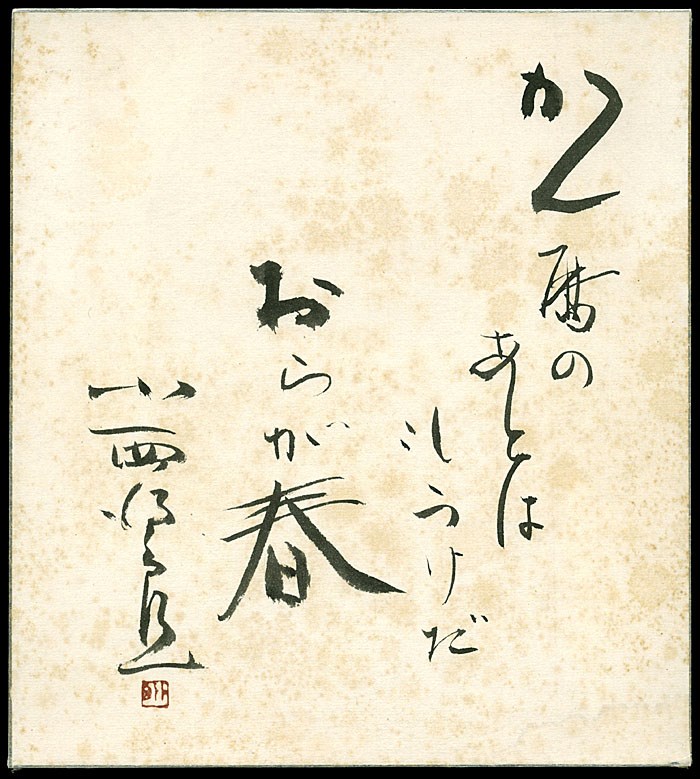 かん暦の
あとは
もうけだ
おらが春
小西得郎